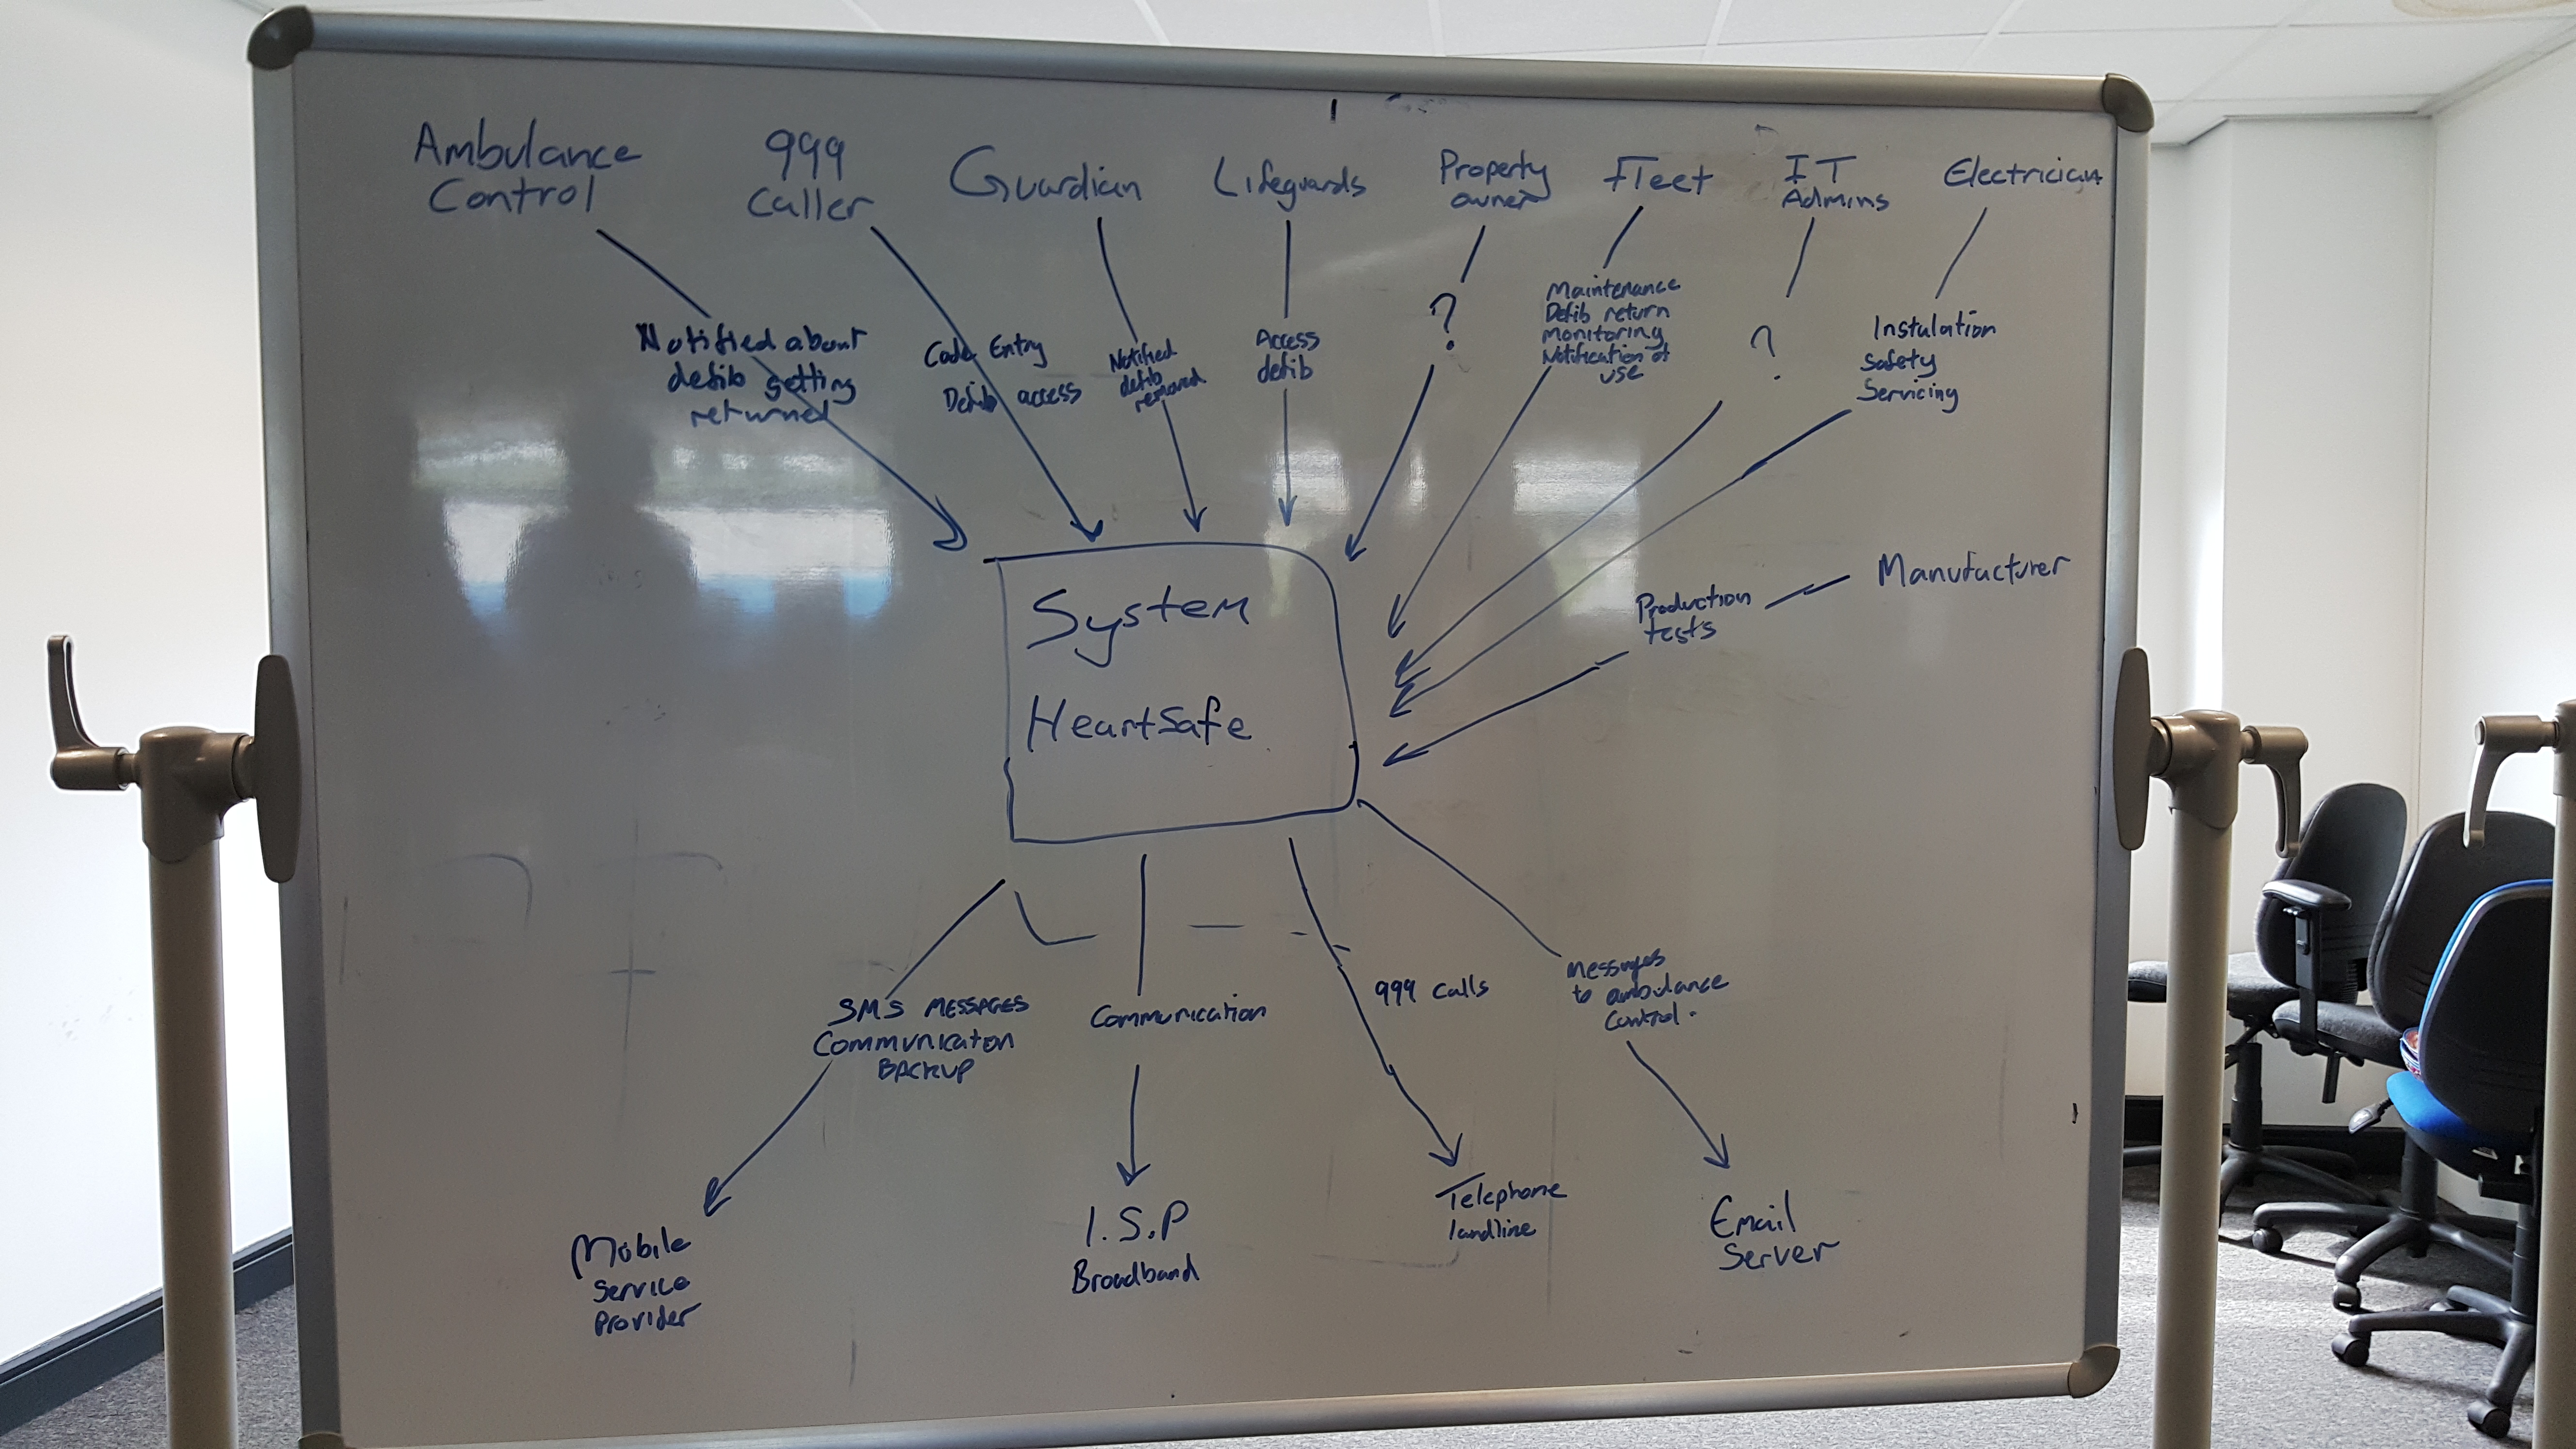 Ambulance
Control
999
Caller
Guardian
Lifeguards
Property
owner
Fleet
IT
Admins
Electrician
Notified about
defib getting
returned
Code Entry
Defib access
Notified
defib
removed
Access
defib
?
Maintenance
Defib return
monitoring
Notification of
use
?
Instulation
Safety
Servicing
System
HeartSafe
Production
tests
Manufacturer
SMS MESSAGES
Communicaton
BACKUP
Communication
999 Calls
Messages
to ambulance
Control.
Mobile
Service
Provider
I.S.P
Broadband
Telephone
landline
Email
Server